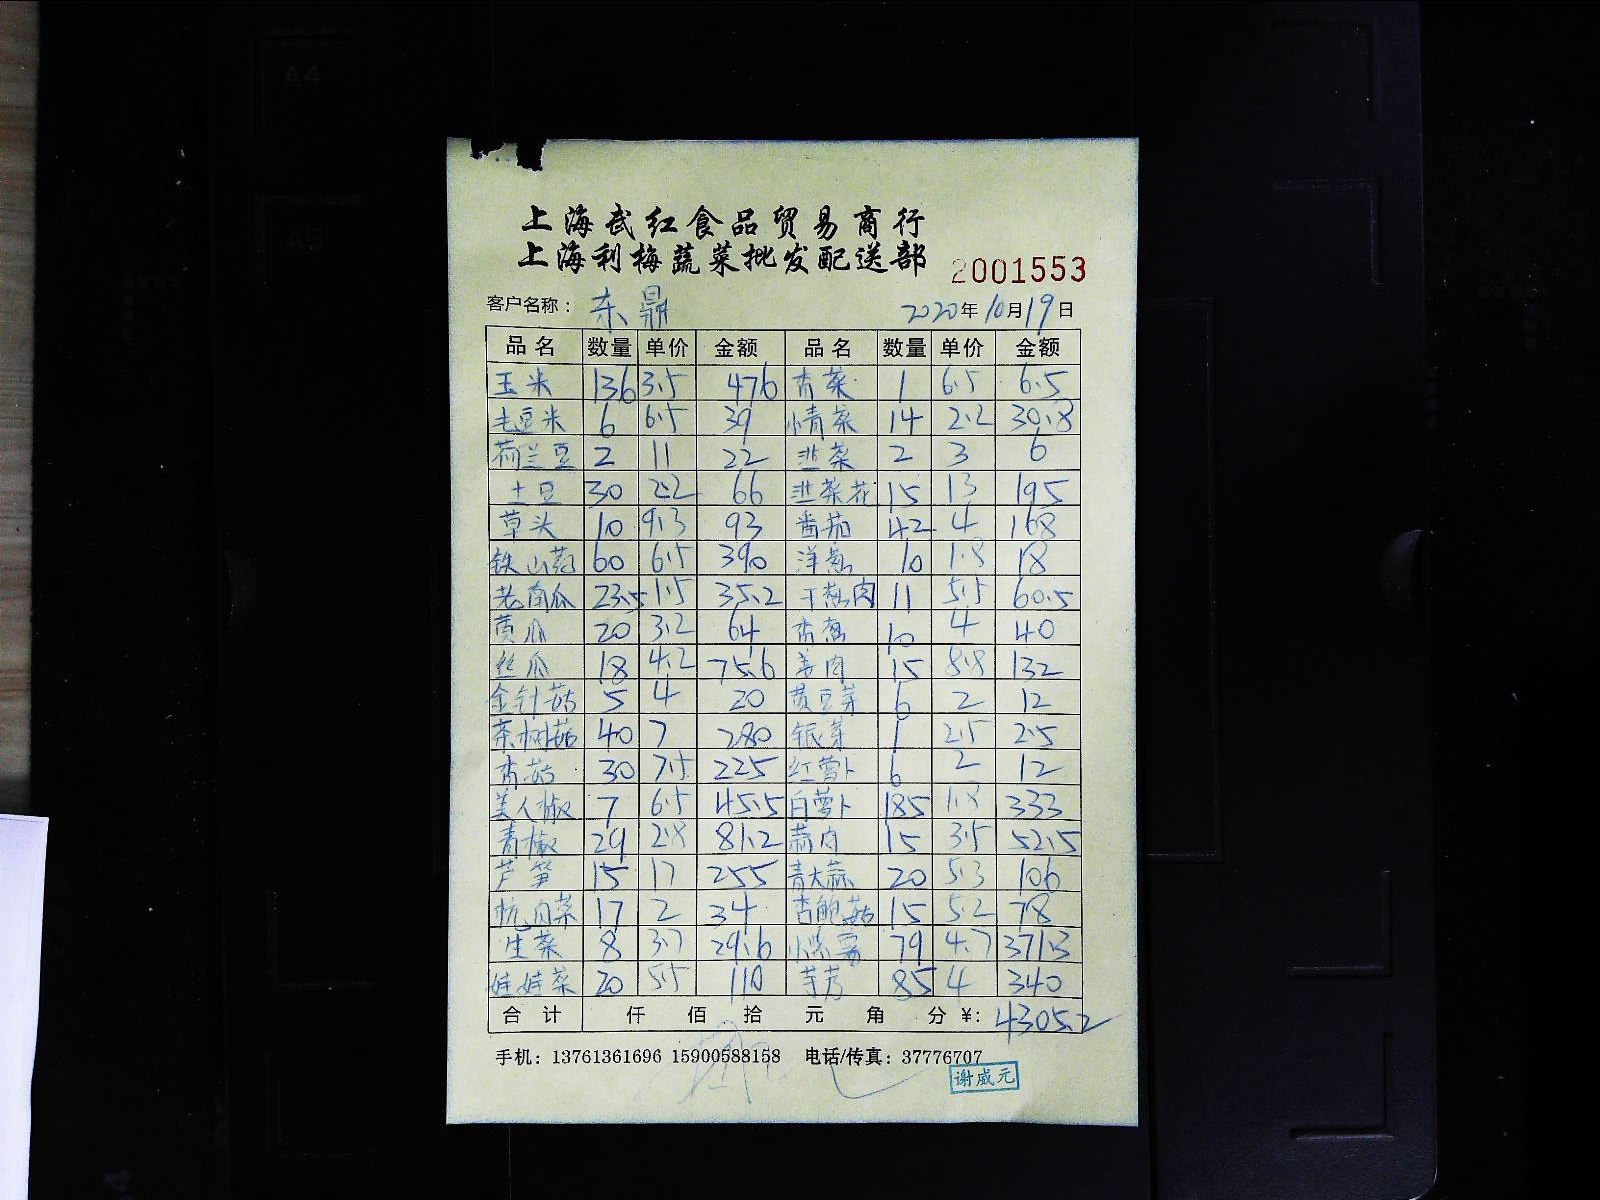 A4
A5
上海武红食品贸易商行
上海利梅蔬菜批发配送部
2001553
客户名称： 东鼎 2020年10月19日
品名 数量 单价 金额 品名 数量 单价 金额
玉米 136 3.5 476 香菜 1 6.5 6.5
毛豆米 6 6.5 39 青菜 14 2.2 30.8
荷兰豆 2 11 22 韭菜 2 3 6
土豆 30 2.2 66 韭菜花 15 13 195
草头 10 9.3 93 番茄 42 4 168
铁山药 60 6.5 390 洋葱 10 1.8 18
老南瓜 23.5 1.5 35.2 干葱肉 11 5.5 60.5
黄瓜 20 3.2 64 香葱 10 4 40
丝瓜 18 4.2 75.6 姜肉 15 8.8 132
金针菇 5 4 20 黄豆芽 6 2 12
茶树菇 40 7 280 银芽 1 2.5 2.5
香菇 30 7.5 225 红萝卜 6 2 12
美人椒 7 6.5 45.5 白萝卜 185 1.8 333
青椒 29 2.8 81.2 蒜肉 15 3.5 52.5
芦笋 15 17 255 青大蒜 20 5.3 106
杭白菜 17 2 34 杏鲍菇 15 5.2 78
生菜 8 3.7 29.6 小紫薯 79 4.7 371.3
娃娃菜 20 5.5 110 芋艿 85 4 340
合计 仟 佰 拾 元 角 分 ¥: 4305.2
手机：13761361696 15900588158 电话/传真：37776707
谢威元